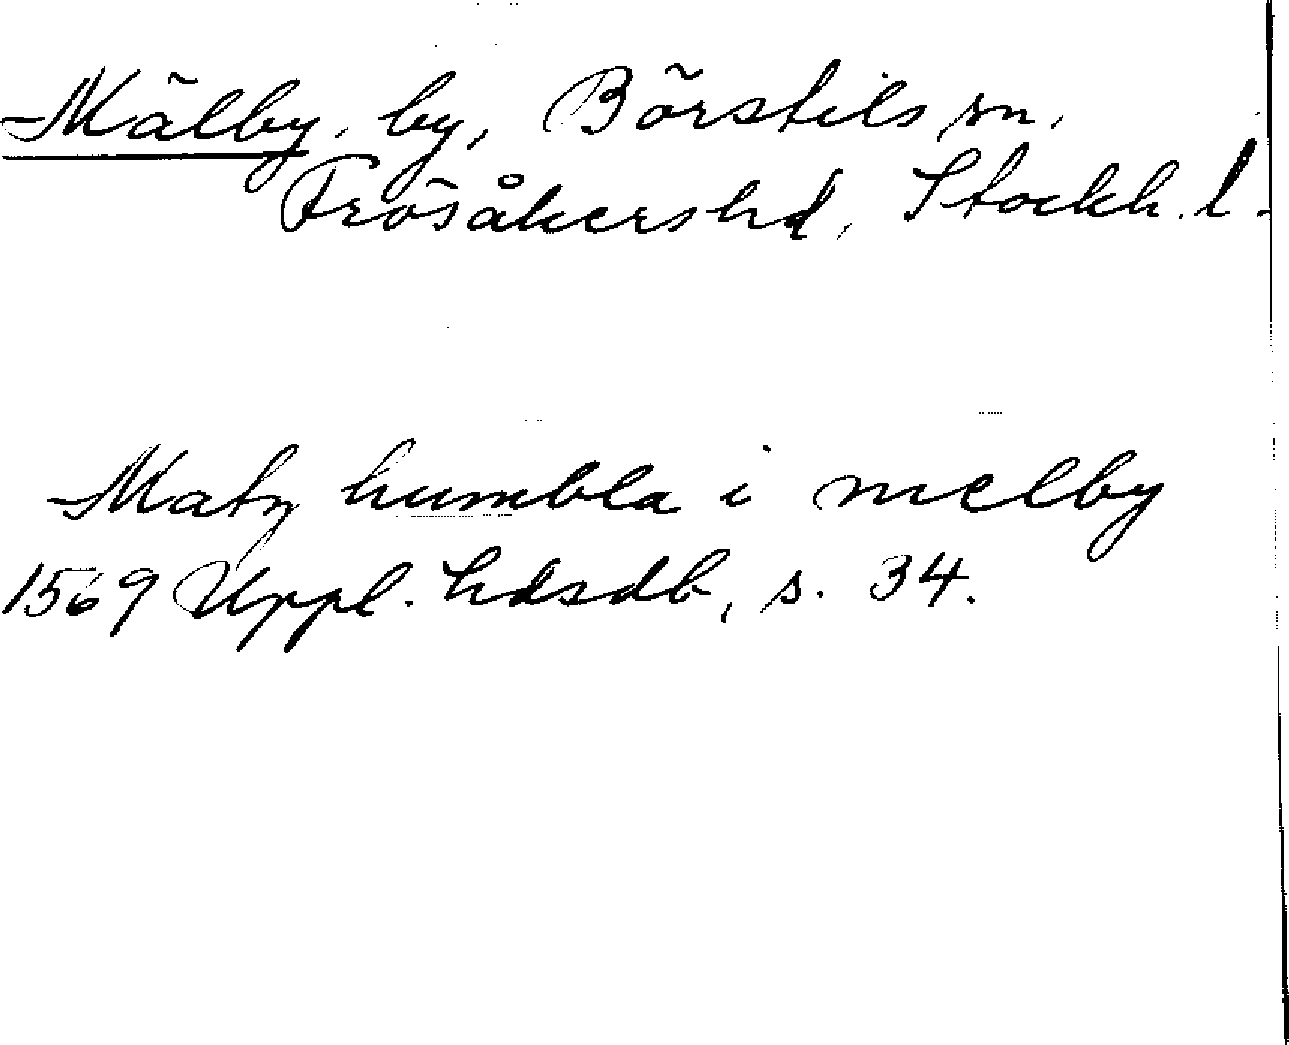 Mälby, by, Börstils sn,
Frösåkers hd, Stockh. l.
Matz humbla i melby
1569 Uppl. hdsdb, s. 34.